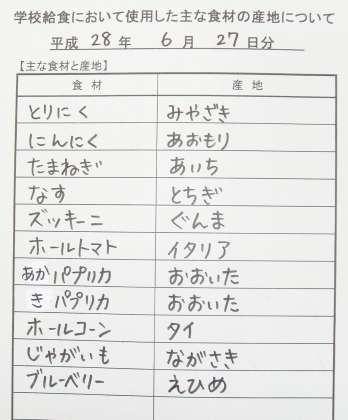 学校給食において使用した主な食材の産地について
平成 28 年 6 月 27 日分
【主な食材と産地】
食材 産地
とりにく みやざき
にんにく あおもり
たまねぎ あいち
なす とちぎ
ズッキーニ ぐんま
ホールトマト イタリア
あかパプリカ おおいた
きパプリカ おおいた
ホールコーン タイ
じゃがいも ながさき
ブルーベリー えひめ